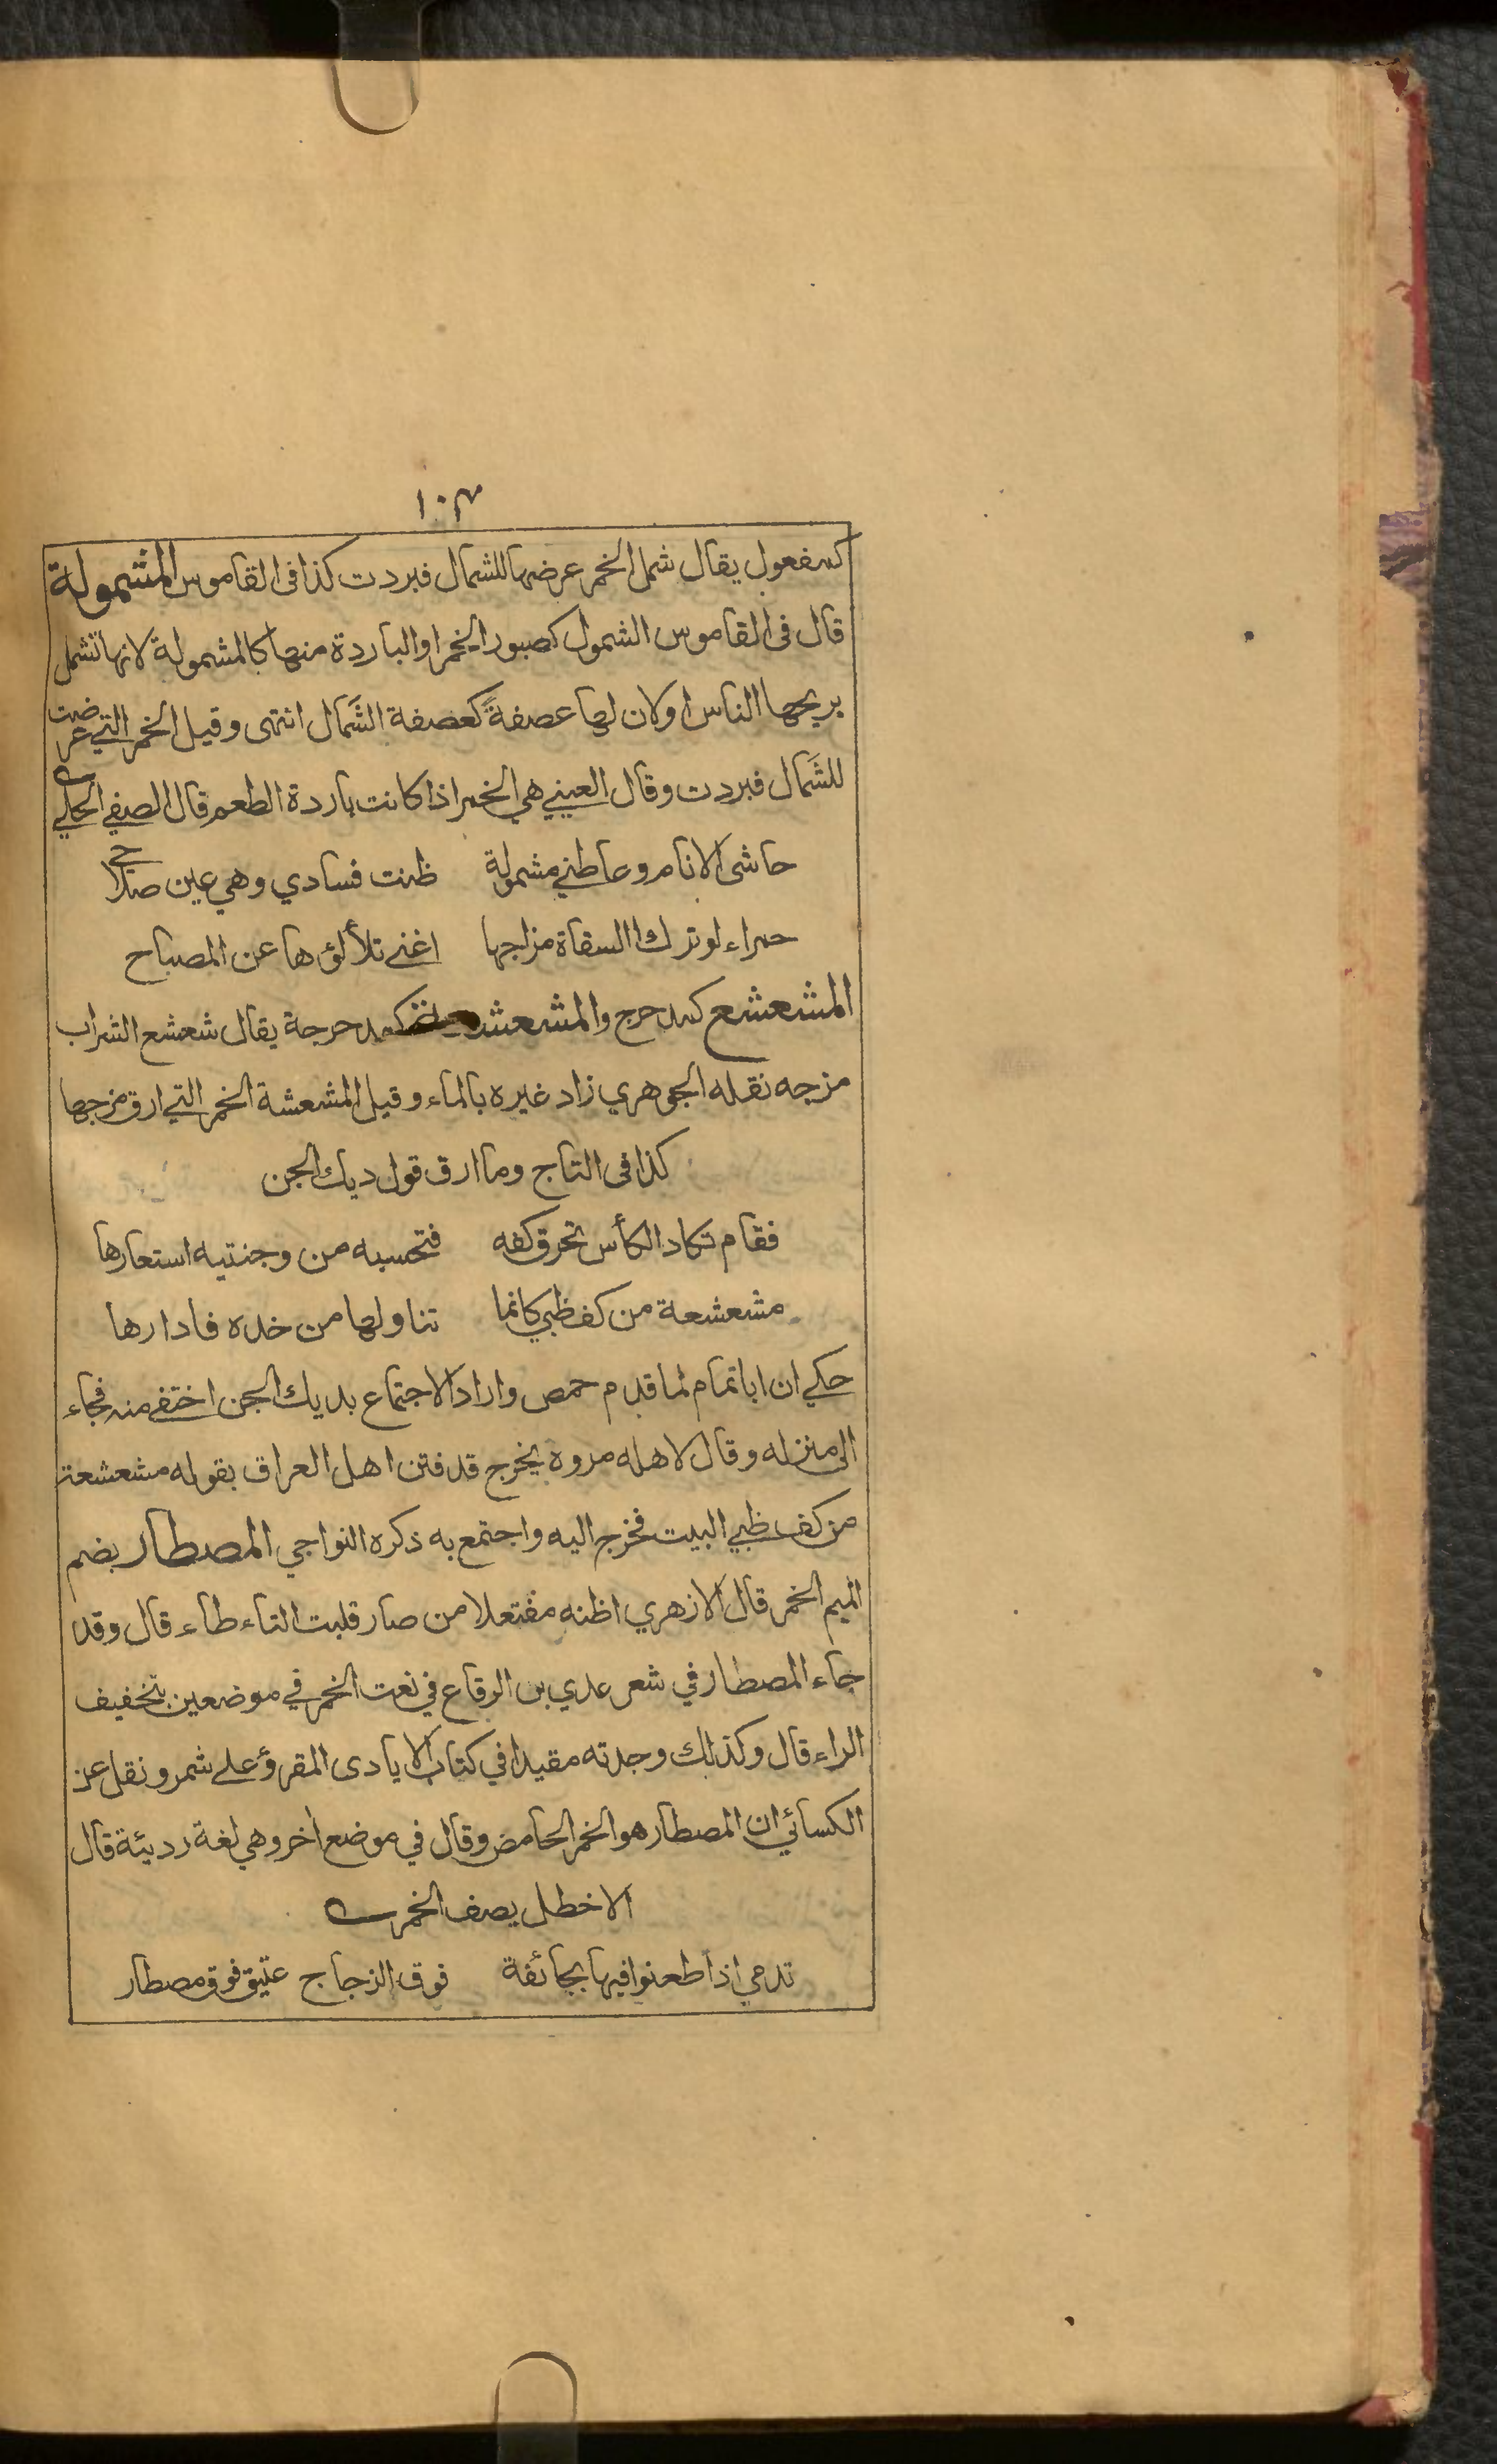 ١٠٣
كمفعول يقال شمل الخمر عرضها للشمال فبردت كذا في القاموس المشمولة
قال في القاموس الشمول كصبور الخمر او الباردة منها كالمشمولة لانها تشمل
بريحها الناس او لان لها عصفةً كعصفة الشَمال انتهى وقيل الخمر التي عرضت
للشَمال فبردت وقال العيني هي الخمر اذا كانت باردة الطعم قال الصفي الحلي
حاشى الانام وعاطني مشمولة ظنت فسادي وهي عين صلاحي
حمراء لو ترك السقاة مزاجها اغنى تلألؤها عن المصباح
المشعشع كمدحرج والمشعشعة كمدحرجة يقال شعشع الشراب
مزجه نقله الجوهري زاد غيره بالماء وقيل المشعشة الخمر التي ارق مزجها
كذا في التاج وما ارق قول ديك الجن
فقام تكاد الكأس تحرق كفه فتحسبه من وجنتيه استعارها
مشعشعة من كف ظبي كانما تناولها من خده فادارها
حكي ان ابا تمام لما قدم حمص واراد الاجتماع بديك الجن اختفى منه فجاء
الى منزله وقال لاهله مروه يخرج قد فتن اهل العراق بقوله مشعشعة
من كف ظبي البيت فخرج اليه واجتمع به ذكره النواجي المصطار بضم
الميم الخمر قال الازهري اظنه مفتعلا من صار قلبت التاء طاء قال وقد
جاء المصطار في شعر عدي بن الرقاع في نعت الخمر في موضعين بتخفيف
الراء قال وكذلك وجدته مقيدا في كتاب الايادى المقرؤ على شمر ونقل عن
الكسائي ان المصطار هو الخمر الحامض وقال في موضع اخر وهي لغة رديئة قال
الاخطل يصف الخمر
تدمي اذا طعنوا فيها بجائفة فوق الزجاج عتيق فوق مصطار